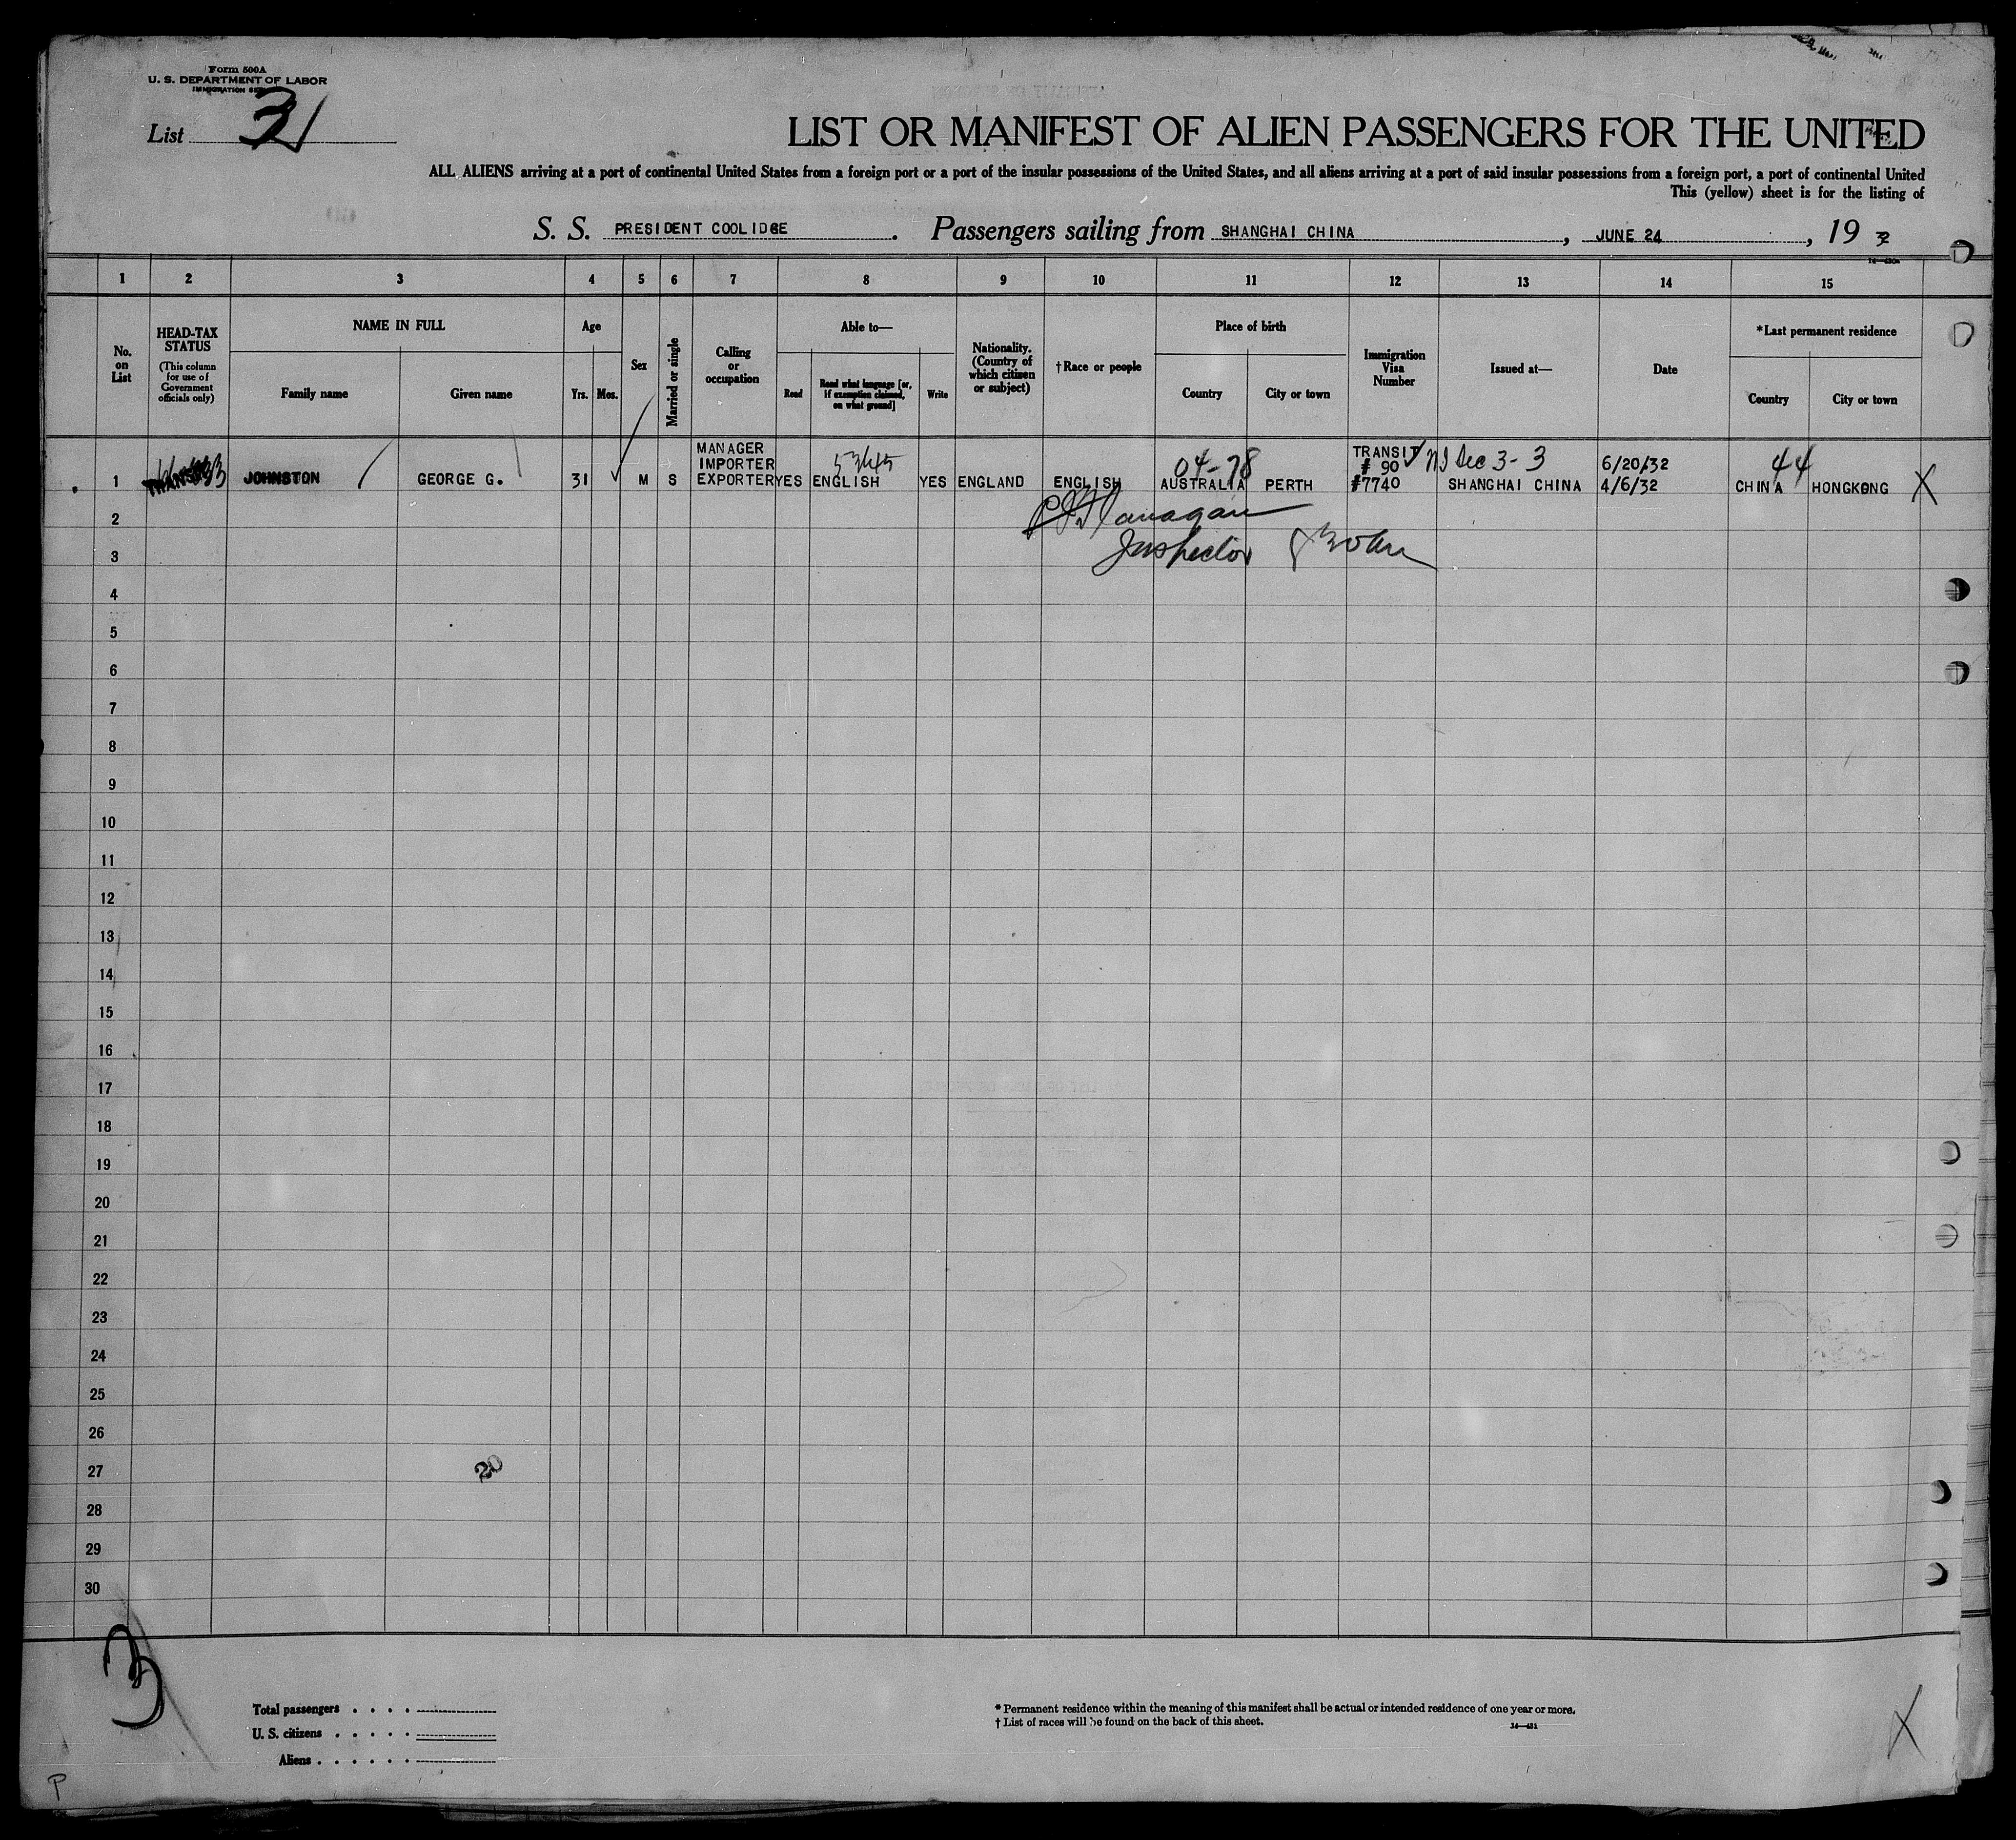 Form 500A
U. S. DEPARTMENT OF LABOR
IMMIGRATION
List 31
LIST OR MANIFEST OF ALIEN PASSENGERS FOR THE UNITED
ALL ALIENS arriving at a port of continental United States from a foreign port or a port of the insular possessions of the United States, and all aliens arriving at a port of said insular possessions from a foreign port, a port of continental United
This (yellow) sheet is for the listing of
S. S. PRESIDENT COOLIDGE. Passengers sailing from SHANGHAI CHINA, JUNE 24, 19 32
1 2 3 4 5 6 7 8 9 10 11 12 13 14 15
No. on List
HEAD-TAX STATUS
(This column for use of Government officials only)
NAME IN FULL
Family name
Given name
Age
Yrs.
Mos.
Sex
Married or single
Calling or occupation
Able to—
Read
Read what language [or, if exemption claimed, on what ground]
Write
Nationality. (Country of which citizen or subject)
†Race or people
Place of birth
Country
City or town
Immigration Visa Number
Issued at—
Date
*Last permanent residence
Country
City or town
MANAGER
IMPORTER
TRANSIT
# 90 NJ Sec 3-3 6/20/32
04-78
44
1 JOHNSTON GEORGE G. 31 M S EXPORTER YES ENGLISH YES ENGLAND ENGLISH AUSTRALIA PERTH #7740 SHANGHAI CHINA 4/6/32 CHINA HONGKONG X
2 Flanagan
3 Inspector
4
5
6
7
8
9
10
11
12
13
14
15
16
17
18
19
20
21
22
23
24
25
26
27
20
28
29
30
3
Total passengers . . . .
U. S. citizens . . . . .
Aliens . . . . . .
* Permanent residence within the meaning of this manifest shall be actual or intended residence of one year or more.
† List of races will be found on the back of this sheet.
X
P